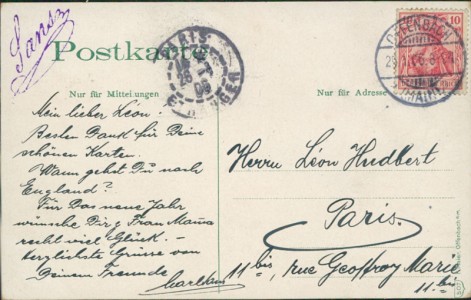 Sansz
Postkarte
PARIS
ETRANGER
OFFENBACH
(MAIN)
10
Nur für Mitteilungen
Nur für Adresse
Mein lieber Léon!
Besten Dank für Deine
schönen Karten.
Wann gehst Du nach
England?
Für Das neue Jahr
wünsche Dir & Frau Mama
recht viel Glück. –
herzlichste Grüsse von
Deinem Freunde
Herrn Léon Hudbert
Paris.
11 bis, rue Geoffroy Marie
11.bis